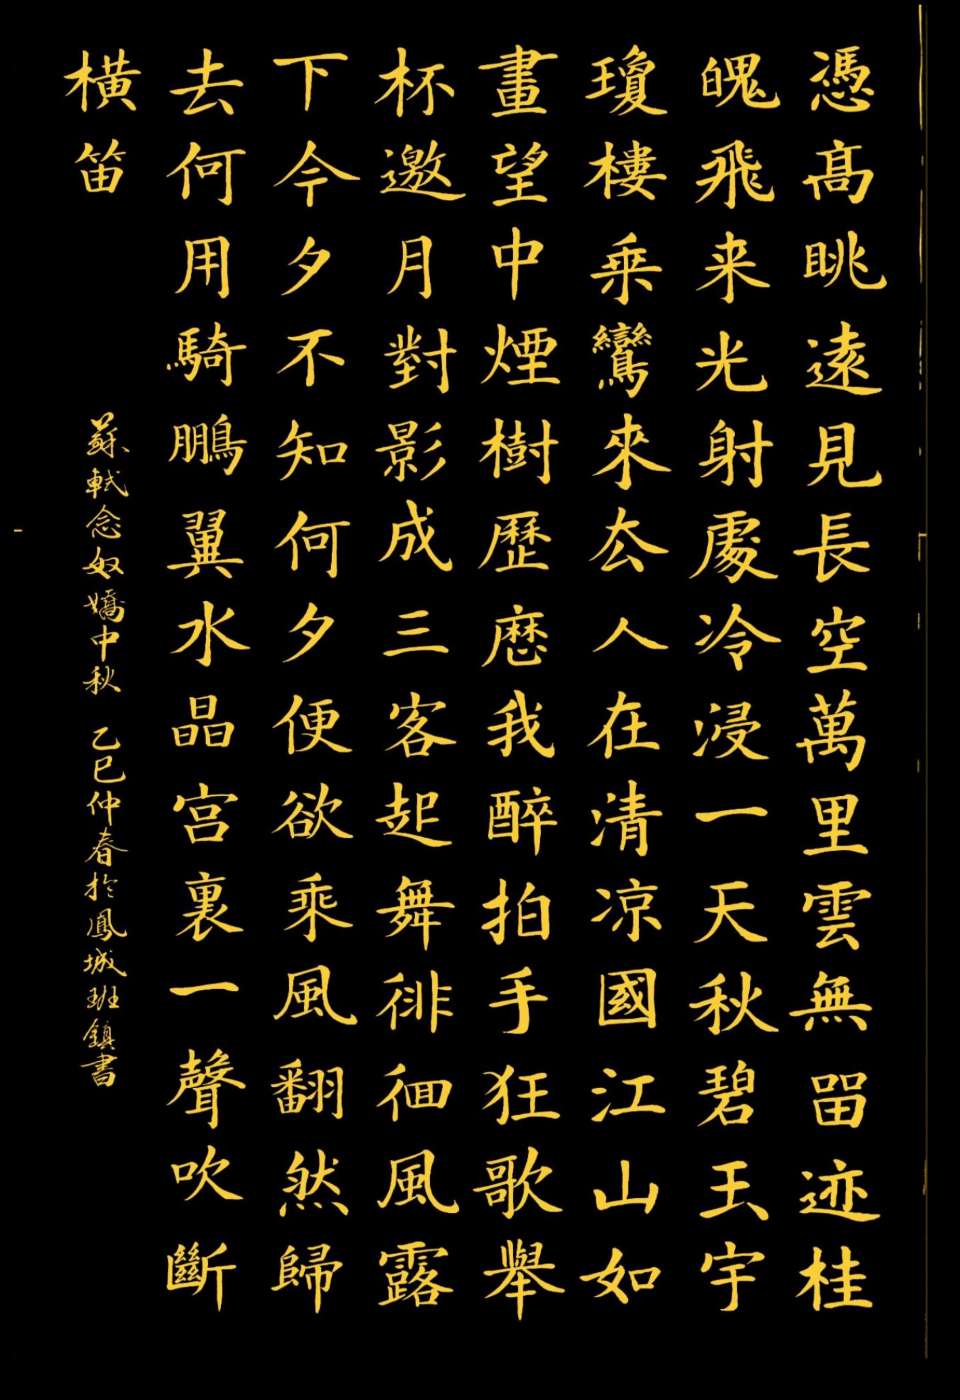 憑高眺遠見長空萬里雲無留迹桂
魄飛来光射處冷浸一天秋碧玉宇
瓊樓乘鸞來去人在清凉國江山如
畫望中煙樹歷歷我醉拍手狂歌舉
杯邀月對影成三客起舞徘徊風露
下今夕不知何夕便欲乘風翻然歸
去何用騎鵬翼水晶宫裏一聲吹斷
橫笛
蘇軾念奴嬌中秋 乙巳仲春於鳳城班鎮書